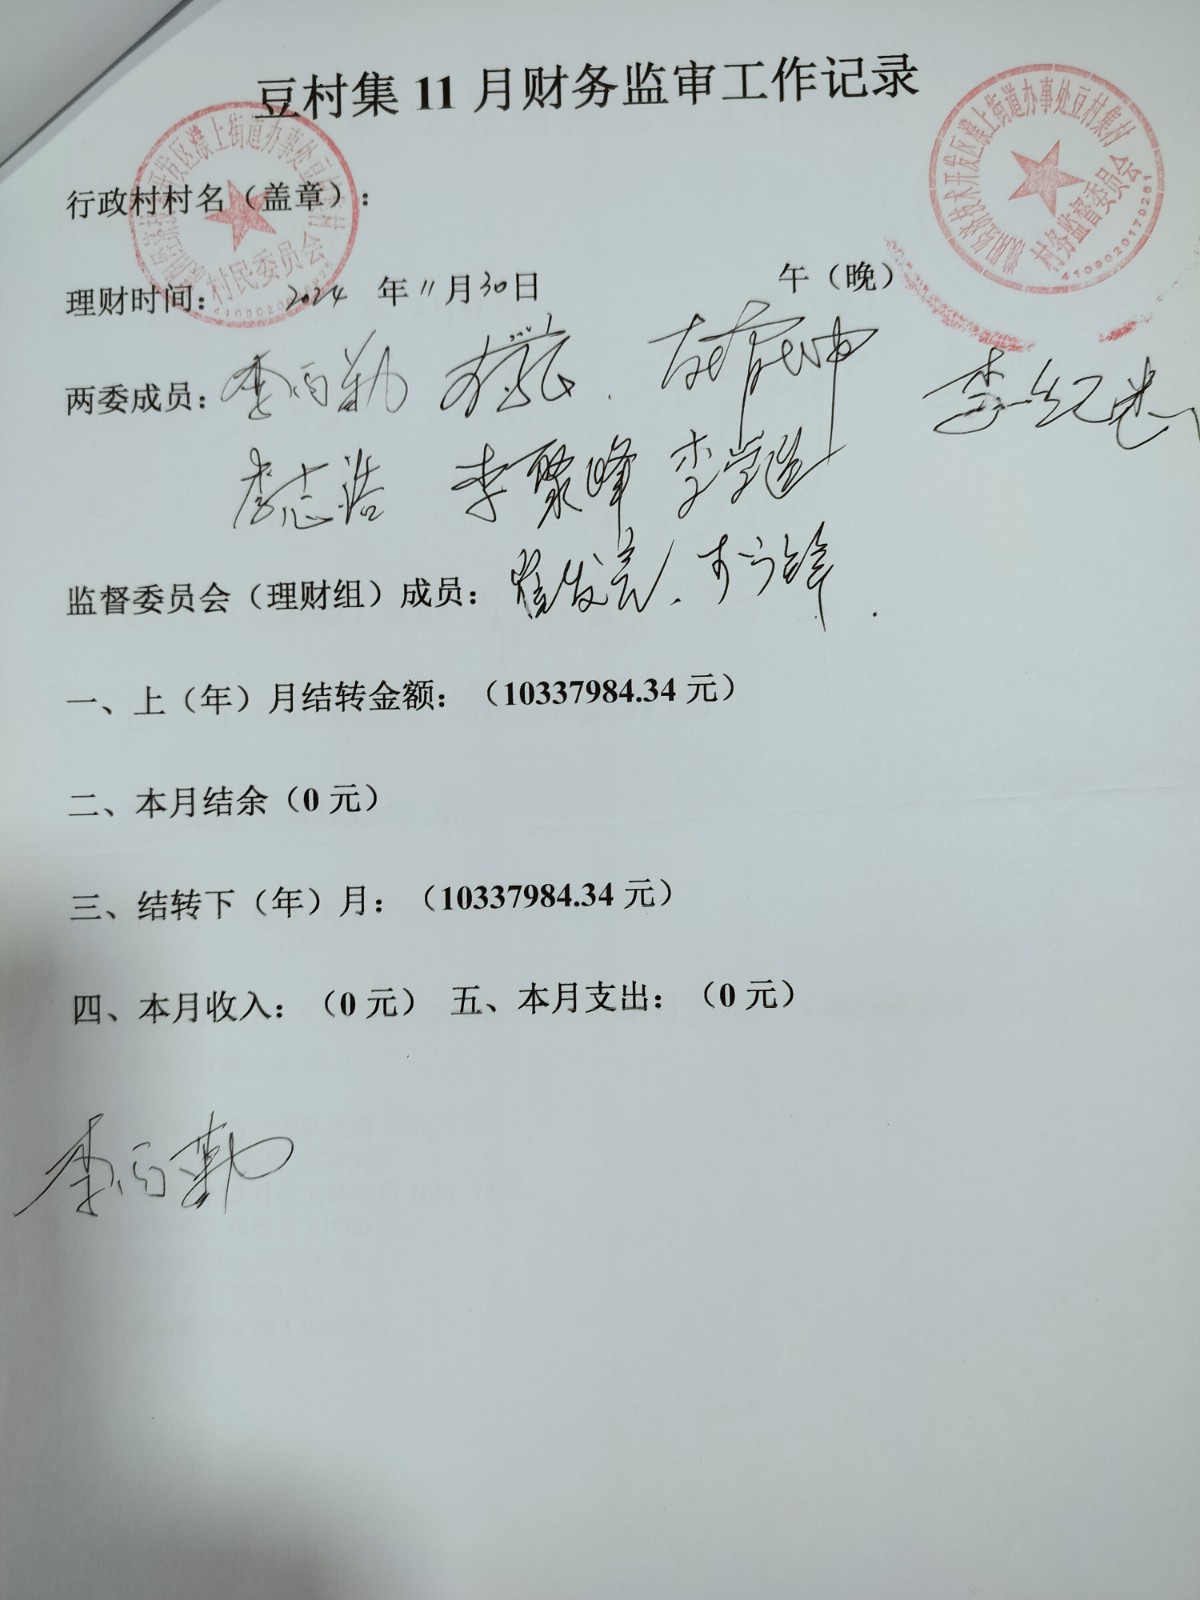 豆村集 11 月财务监审工作记录
行政村村名（盖章）：
村民委员会
濮阳经济技术开发区濮上街道办事处豆村集村
村务监督委员会
4109020170261
理财时间： 2024 年 11 月 30 日 午（晚）
两委成员： 李丙勤 李纪忠
李志浩 李聚峰
监督委员会（理财组）成员：
一、上（年）月结转金额：（10337984.34 元）
二、本月结余（0 元）
三、结转下（年）月：（10337984.34 元）
四、本月收入：（0 元） 五、本月支出：（0 元）
李丙勤